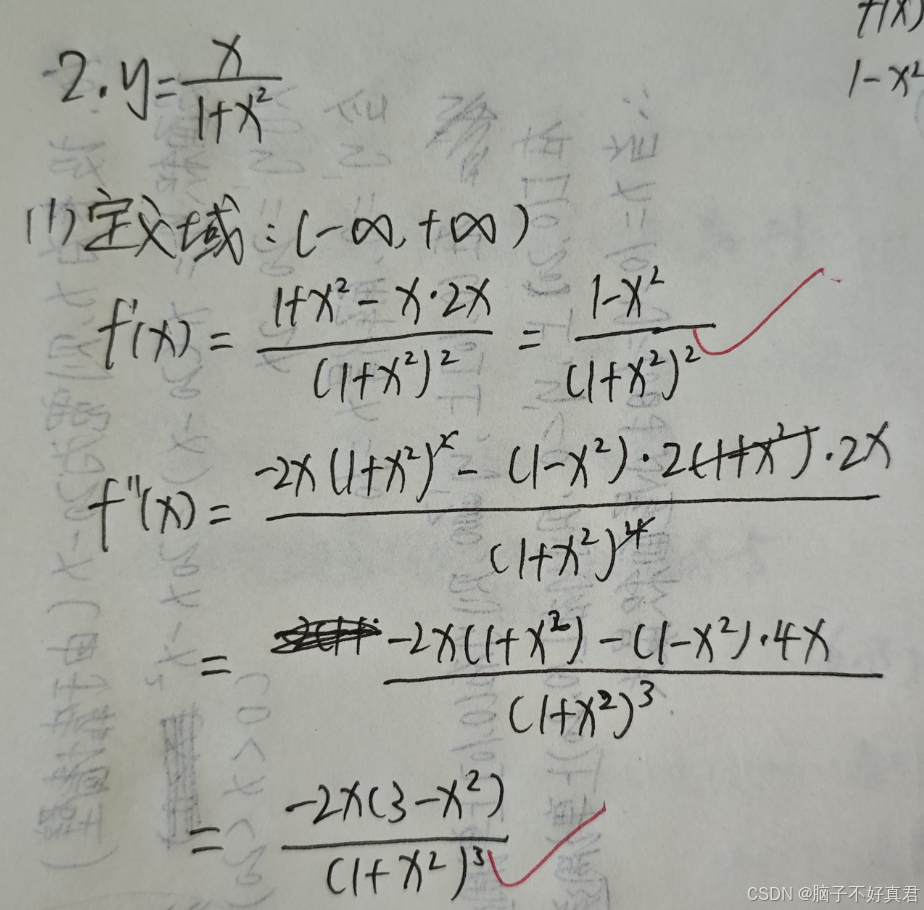 f(x)
1-x²
2. y = x/(1+x²)
(1) 定义域:(-∞,+∞)
f'(x) = (1+x²-x·2x)/(1+x²)² = (1-x²)/(1+x²)²
f''(x) = (-2x(1+x²)²-(1-x²)·2(1+x²)·2x)/(1+x²)⁴
= (-2x(1+x²)-(1-x²)·4x)/(1+x²)³
= (-2x(3-x²))/(1+x²)³
CSDN @脑子不好真君